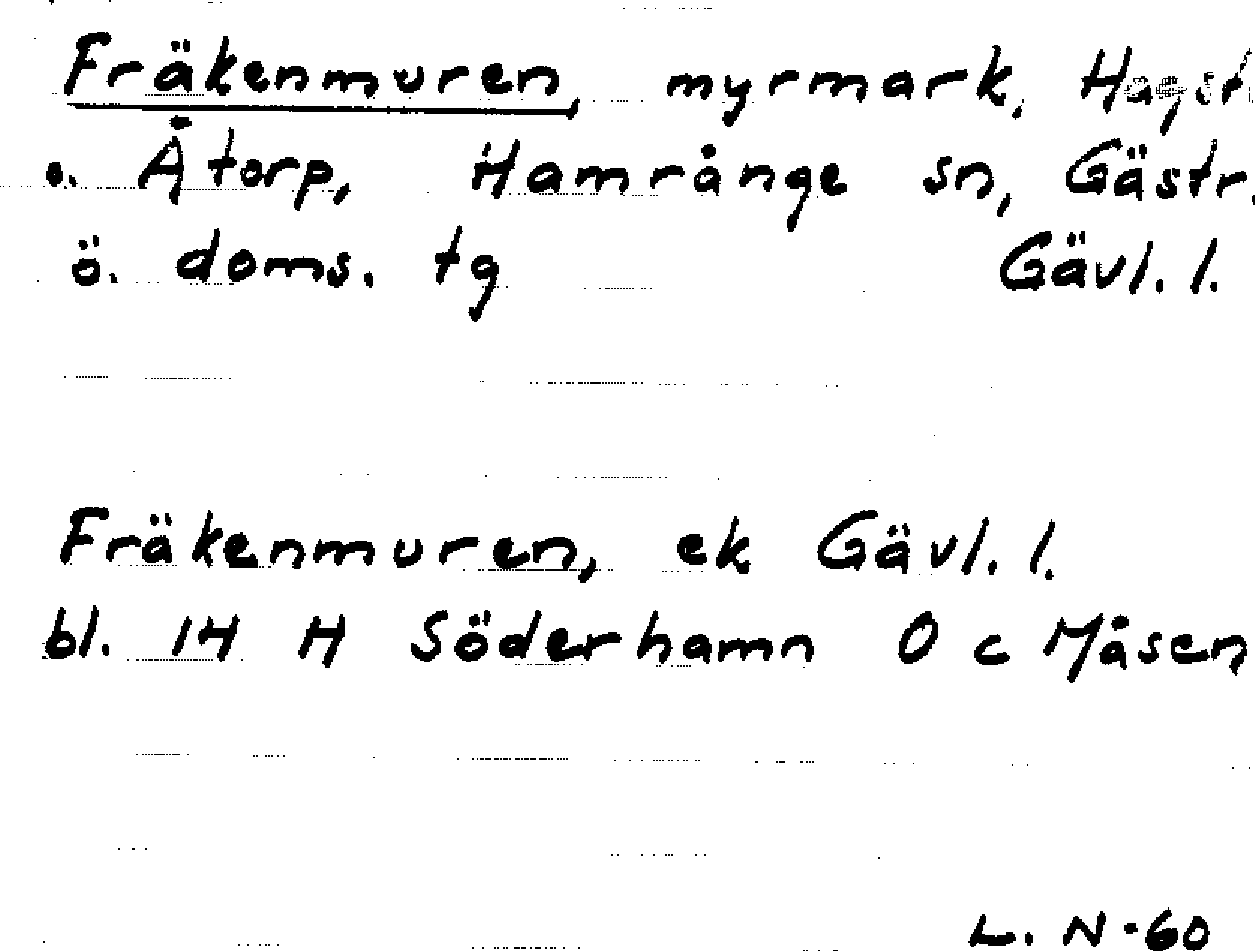 Fräkenmuren, myrmark,
o. Åtorp, Hamrånge sn, Gästr.
ö. doms. tg Gävl. l.
Fräkenmuren, ek Gävl. l.
bl. 14 H Söderhamn 0 c Måsen
L. N-60